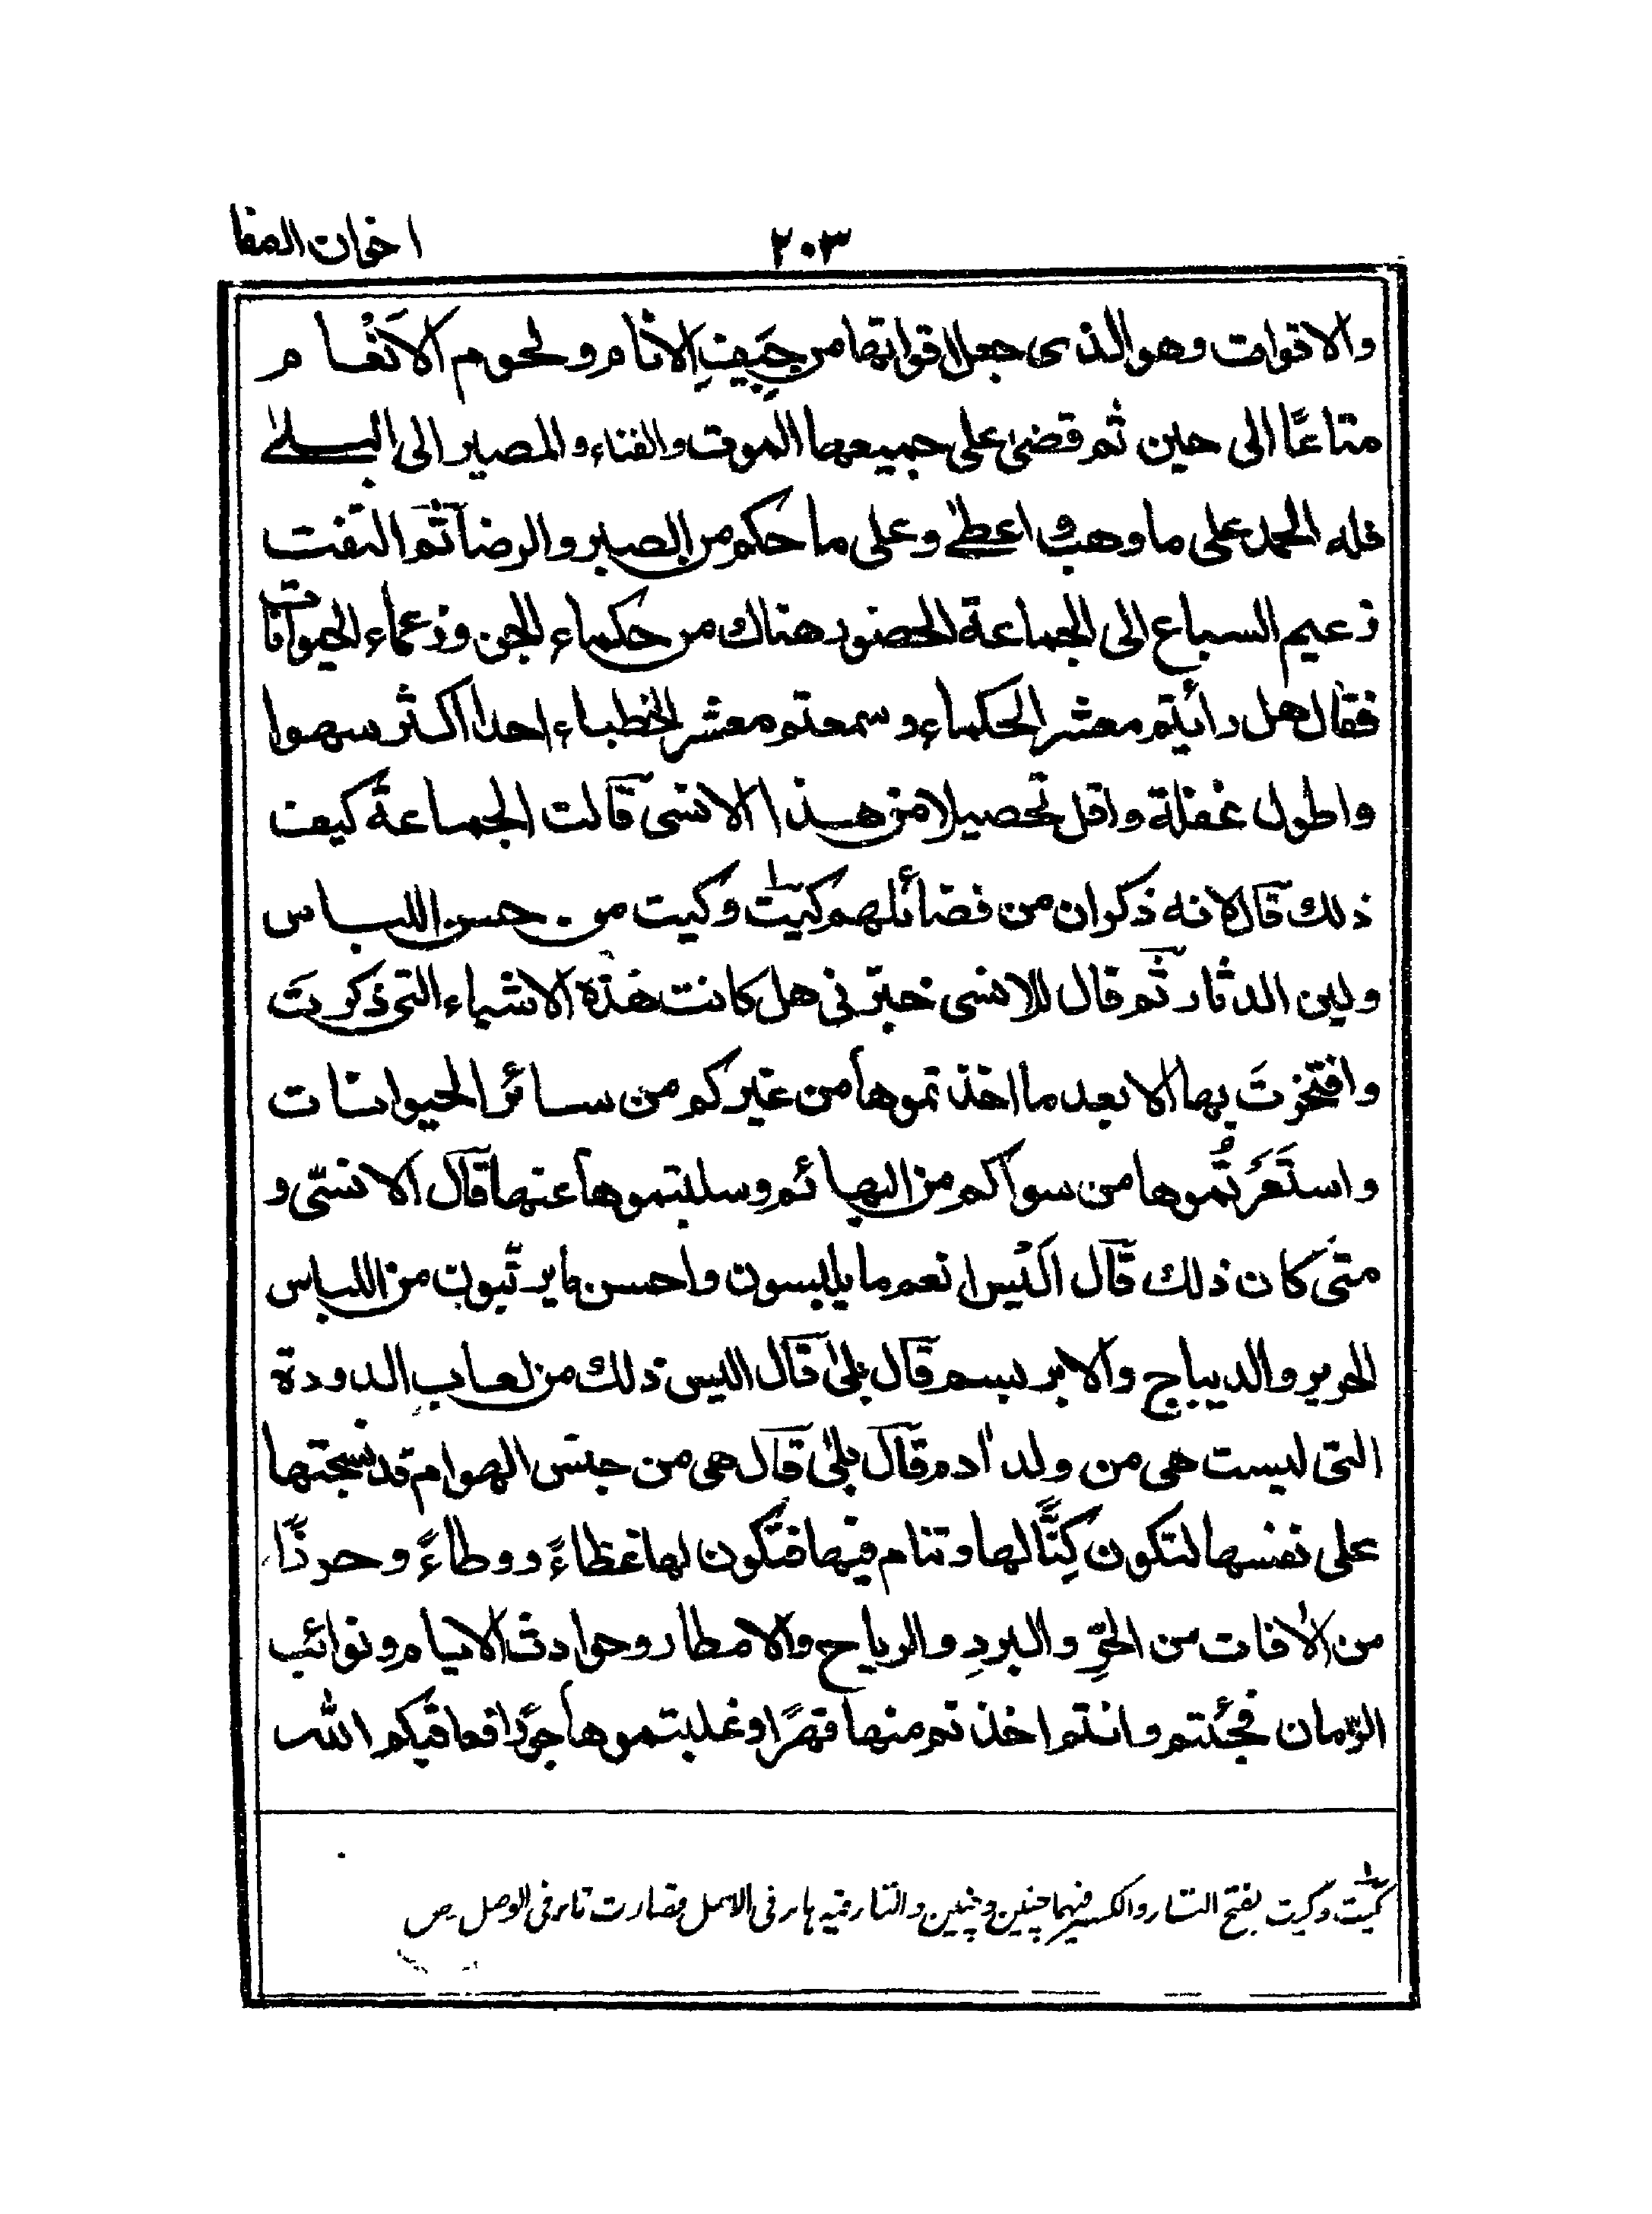 ٢٠٣ اخوان الصفا
والاقوات وهو الذى جعل اقواتها من جِيَفِ الانام ولحوم الاَنْعام
متاعًا الى حين ثم قضىٰ على جميعها الموت والفناء والمصير الى البلىٰ
فله الحمد على ما وهب واعطىٰ وعلى ما حكم من الصبر والرضا ثم التفت
زعيم السباع الى الجماعة الحضور هناك من حكماء الجن وزعماء الحيوانات
فقال هل رأيتم معشر الحكماء وسمعتم معشر الخطباء احدا اكثر سهوا
واطول غفلة واقل تحصيلا من هذا الانسى قالت الجماعة كيف
ذلك قال لانه ذكر ان من فضائلهم كيتَ وكيت من حسن اللباس
ولين الدثار ثم قال للانسى خبّرنى هل كانت هٰذه الاشياء التى ذكرتَ
وافتخرتَ بها الا بعد ما اخذتموها من غيركم من سائر الحيوانات
واستَعَرتُموها من سواكم من البهائم وسلبتموها عنها قال الانسىّ و
متى كان ذلك قال اَلَيْس انعم ما يلبسون واحسن ما يرتّبون من اللباس
الحرير والديباج والابريسم قال بلىٰ قال اليس ذلك من لعاب الدودة
التى ليست هى من ولد اٰدم قال بلىٰ قال هى من جنس الهوام قد نسجتها
على نفسها لتكون كِنًّا لها وتنام فيها فتكون لها غطاءً ووطاءً وحرزًا
من الاٰفات من الحَرِّ والبردِ والرياح والامطار وحوادث الايام ونوائب
الزّمان فجئتم وانتم اخذتم منها قهرًا وغلبتموها جورًا فعاقبكم الله
كيتَ وكيت بفتح التاء والكسر فيهما چنين وچنين والتاء فيه هاء فى الاصل فصارت تاء فى الوصل ص